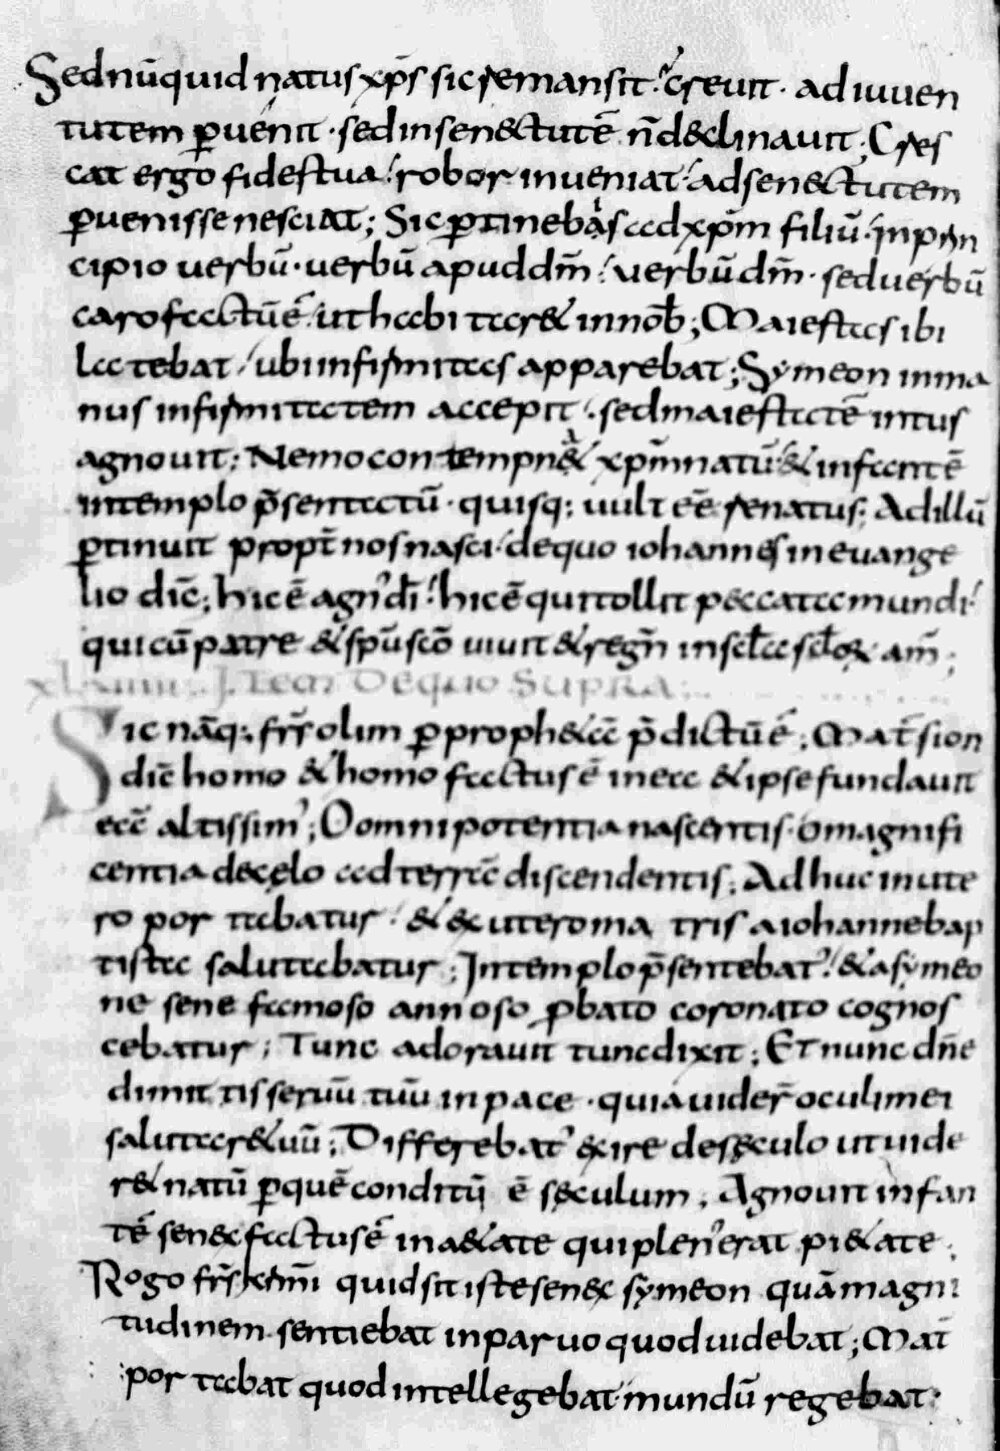 Sed nũquid natus xp̃s sic remansit · creuit · ad iuuen
tutem ꝑuenit · sed in senectutẽ ñ declinauit ; Cres
cat ergo fides tua · robor inueniat · ad senectutem
ꝑuenisse nesciat ; Sic ꝑtinebas ad xp̃m filiũ · in prin
cipio uerbũ · uerbũ apud dm̃ · uerbũ dm̃ · sed uerbũ
caro factũ ẽ · ut habitaret in nob̃ ; Maiestas ibi
latebat · ubi infirmitas apparebat ; Symeon in ma
nus infirmitatem accepit · sed maiestatẽ intus
agnouit ; Nemo contempneret xp̃m natũ · & infantẽ
in templo p̃sentatũ · quisq; uult eẽ renatus ; Ad illũ
ꝑtinuit propt̃ nos nasci · de quo iohannes in euange
lio dic̃ ; hic ẽ agn' dĩ · hic ẽ qui tollit peccata mundi ·
qui cũ patre & sp̃u sc̃o uiuit & regñ in scl̃a scl̃oꝝ am̃ ;
xlꝟiiii . Item De quo Supra .
Sic nãq; fr̃s olim ꝑ propheta p̃dictũ ẽ ; Mat̃ sion
dic̃ homo & homo factus ẽ in ea & ipse fundauit
eã altissim' ; O omnipotentia nascentis · o magnifi
centia de cęlo ad terrã discendentis ; Adhuc in ute
ro portabatur · & ex utero matris a iohanne bap
tista salutabatur ; In templo p̃sentabat' · & a symeo
ne sene famoso annoso ꝓbato coronato cognos
cebatur ; Tunc adorauit tunc dixit ; Et nunc dñe
dimittis seruũ tuũ in pace · quia uider̃ oculi mei
salutare tuũ ; Differebat' exire de sęculo ut uide
ret natũ ꝑ quẽ conditũ ẽ sęculum ; Agnouit infan
tẽ senex factus ẽ in aetate qui plen' erat pietate ;
Rogo fr̃s km̃i quid sit iste senex symeon quã magni
tudinem sentiebat in paruo quod uidebat ; Mat̃
portabat quod intellegebat mundũ regebat ·